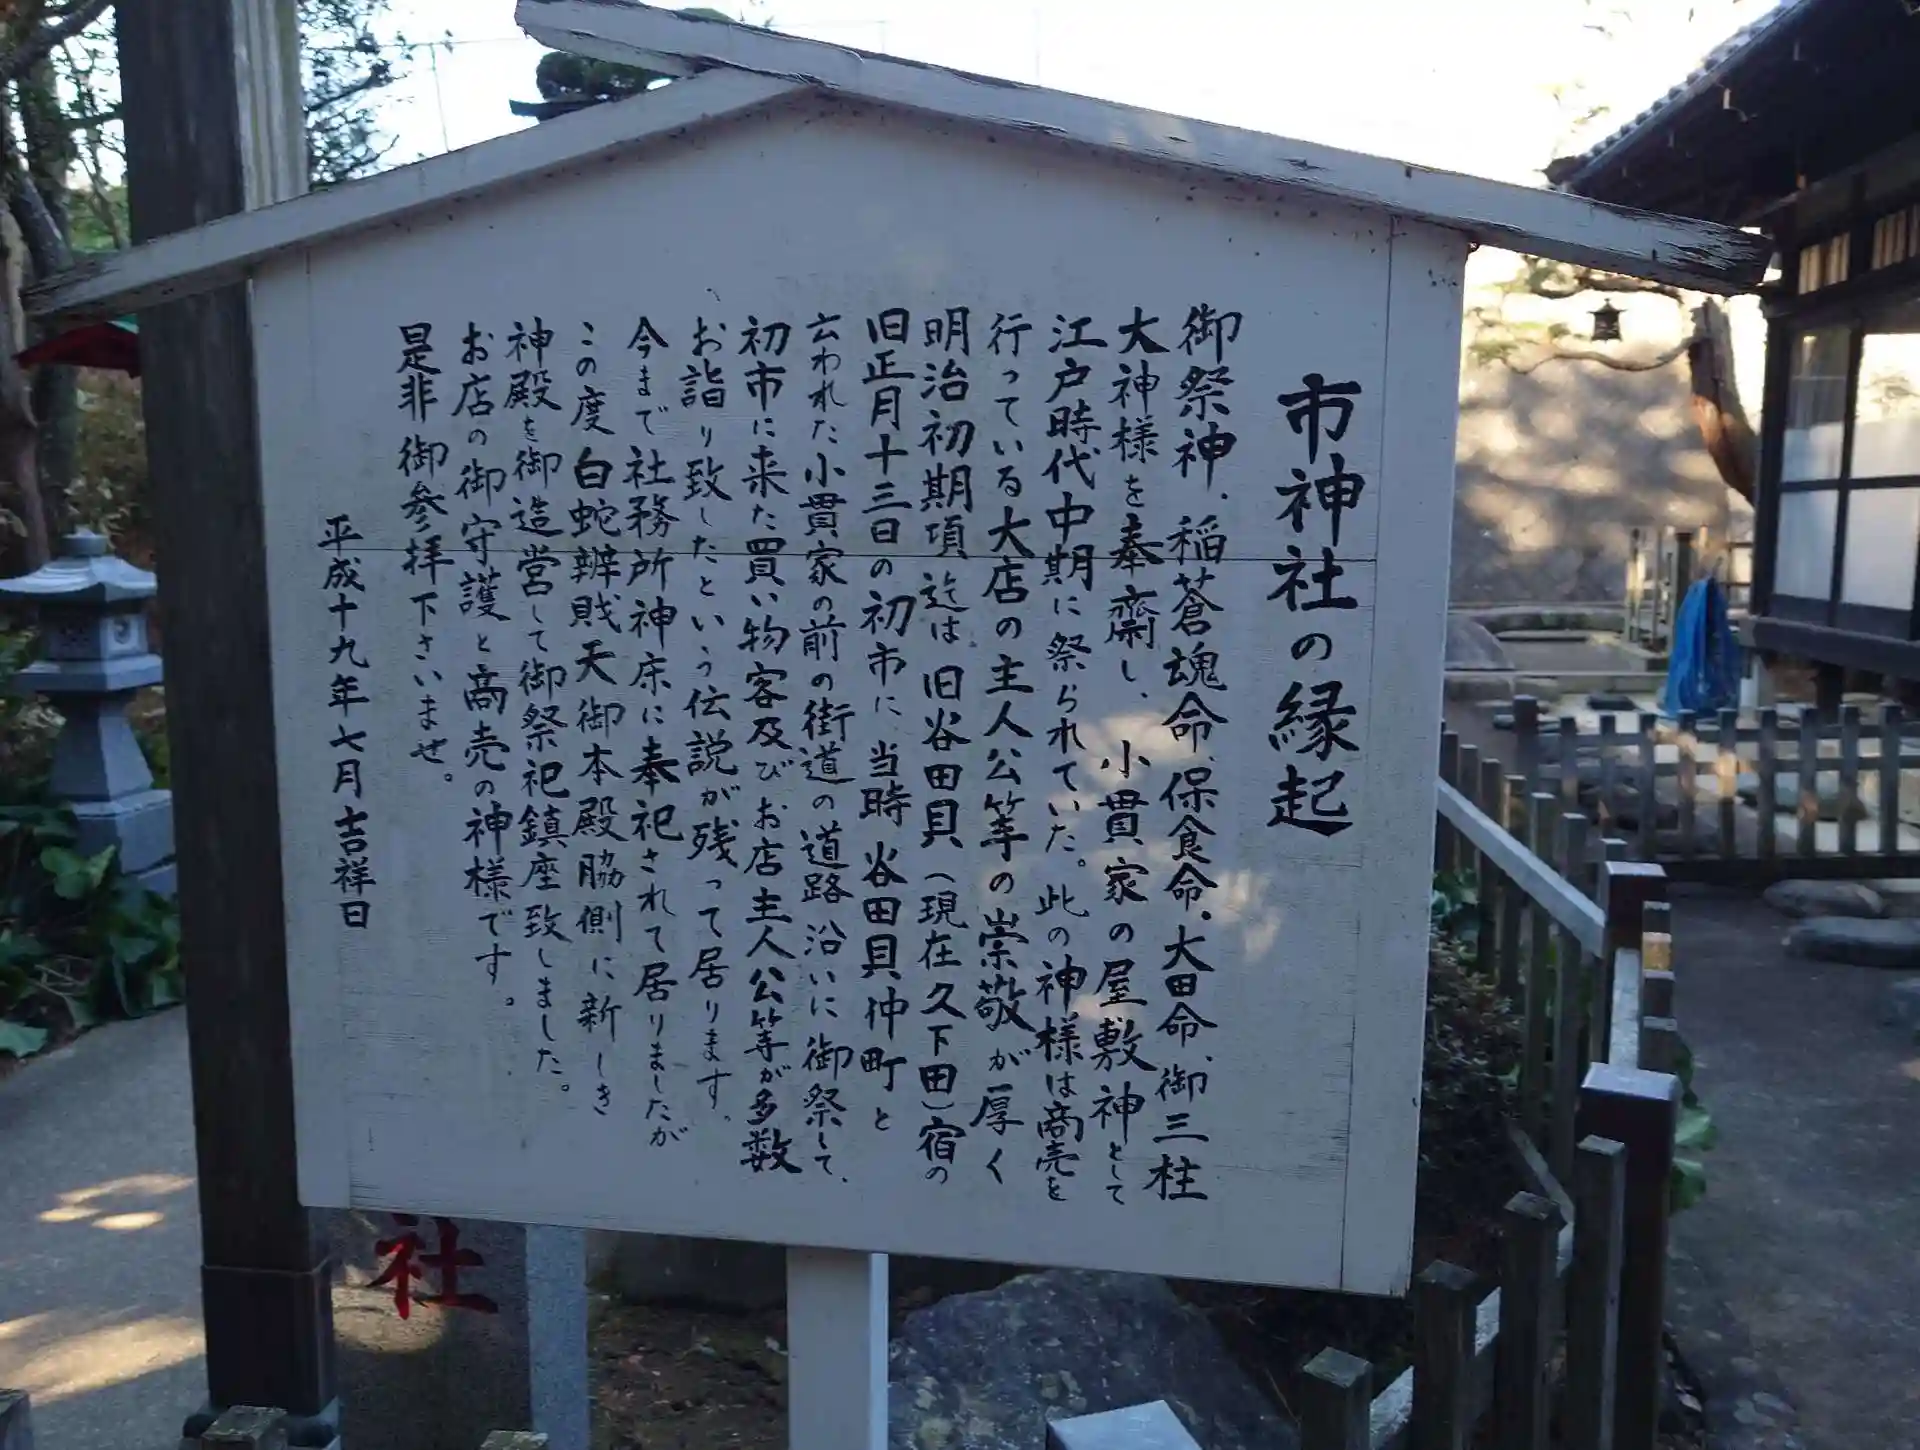 市神社の縁起
御祭神、稲蒼魂命、保食命、大田命、御三柱
大神様を奉齋し、小貫家の屋敷神として
江戸時代中期に祭られていた。此の神様は商売を
行っている大店の主人公等の崇敬が厚く
明治初期頃迄は旧谷田貝(現在久下田)宿の
旧正月十三日の初市に、当時谷田貝仲町と
云われた小貫家の前の街道の道路沿いに御祭して、
初市に来た買い物客及びお店主人公等が多数
お詣り致したという伝説が残って居ります。
今まで社務所神床に奉祀されて居りましたが
この度白蛇辨賎天御本殿脇側に新しき
神殿を御造営して御祭祀鎮座致しました。
お店の御守護と商売の神様です。
是非御参拝下さいませ。
平成十九年七月吉祥日
社